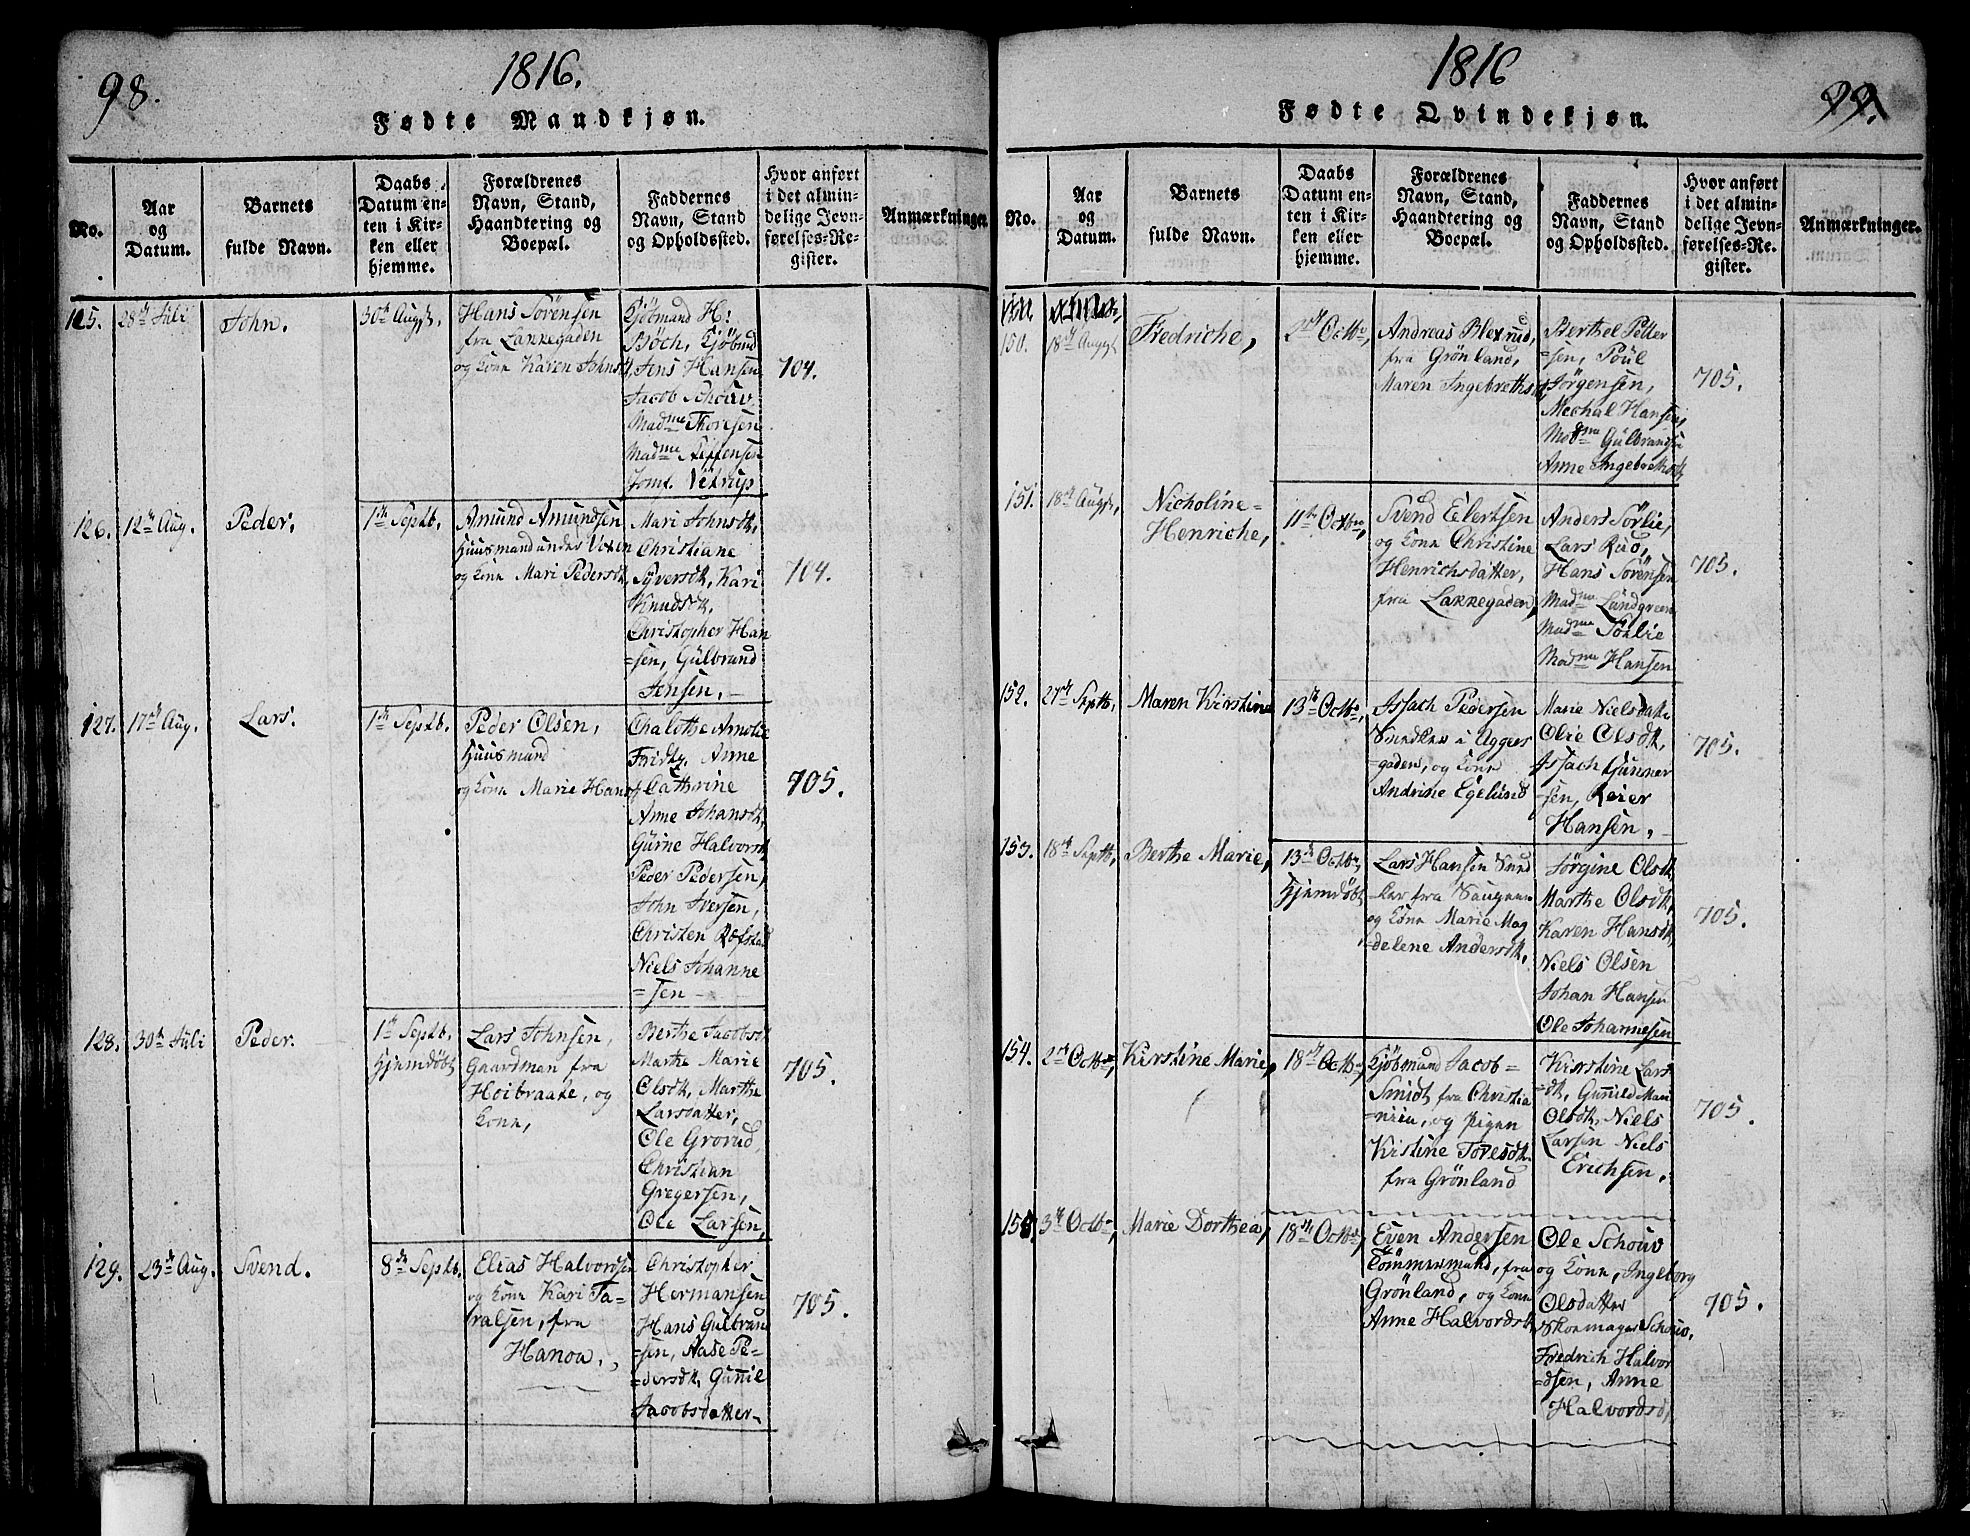 98.
1816.
Fødte Mandkjøn.
No.
Aar
og
Datum.
Barnets
fulde Navn.
Daabs
Datum en-
ten i Kir-
ken eller
hjemme.
Forældrenes
Navn, Stand,
Haandtering og
Boepæl.
Faddernes
Navn, Stand
og Opholdssted.
Hvor anført
i det almin-
delige Jevn-
førelses-Re-
gister.
Anmærkninger.
125. 28de Juli
John.
30te Augst.
Hans Sörensen
fra Lakkegaden
og Kone Karen Johnsd.
Kjöbmand H:
Böch, Kjöbmd
Jens Hansen
Jacob Schouv
Madme Thoresen
Madme
Jomf. Vitrup
704.
126. 12te Aug.
Peder.
1ste Septb.
Amund Amundsen
Huusmand under
og Kone Mari Pedersdt.
Mari Johnsdt,
Christiane
Syversdt, Kari
Knudsdt,
Christopher Han
=sen, Gülbrand
Jensen.
704.
127. 17de Aug.
Lars.
1ste Septb.
Peder Olsen,
Huusmand
og Kone Marie Hans
Chalotte
Anne
Cathrine
Anne Johansdt,
Gurine Halvorsdt
Peder Pedersen,
John Iversen,
Christen
Niels Johanne
=sen
705.
128. 30te Juli
Peder.
1ste Septb.
Hjemdöbt
Lars Johnsen,
Gaardman fra
Hoibraate, og
Kone,
Berthe Jacobsdt
Marthe Marie
Olsdt, Marthe
Larsdatter,
Ole Grorud,
Christian
Gregersen,
Ole Larsen,
705.
129. 23de Aug.
Svend.
8de Septb.
Elias Halvordsen
og Kone Kari Ta-
ralsen, fra
Hanoa.
Christopher
Hermansen
Hans Gulbrand
=sen, Aase Pe=
=dersdt, Gunnil
Jacobsdatter
705.
1816
99.
Fødte Qvindekjøn.
No.
Aar
og
Datum.
Barnets
fulde Navn.
Daabs
Datum en-
ten i Kir-
ken eller
hjemme.
Forældrenes
Navn, Stand,
Haandtering og
Boepæl.
Faddernes
Navn, Stand
og Opholdssted.
Hvor anført
i det almin-
delige Jevn-
førelses-Re-
gister.
Anmærkninger.
150. 18de Augst
Fredriche,
2den Octbr,
Andreas Blexrud,
fra Grönland,
Maren Ingebrethsdt,
Berthel Peter
=sen, Poul
Jörgensen,
Mechal Hansen,
Madme Gülbrandsen
Anne Ingebrethsdt,
705.
151. 18de Augst,
Nicholine=
Henriche,
11te Octbr,
Svend Eilertsen
og Kone Christine
Henrichsdatter,
fra Lakkegaden,
Anders Sörlie,
Lars Rud,
Hans Sörensen
Madme Lundgreen
Madme Sörlie
Madme Hansen
705.
152. 27de Septb,
Maren Kirstine
13de Octbr,
Issach Pedersen
Snedker i Agger
=gaden, og Kone
Andrine Egelund
Marie Nielsdatter
Olie Olsdt,
Issach Gunner
=sen, Reier
Hansen.
705.
153. 18de Septb,
Berthe Marie,
13de Octbr,
Hjemdöbt
Lars Hansen Sned
=ker fra Saugene
og Kone Marie Mag
=delene Andersdt,
Jörgine Olsdt,
Marthe Olsdt,
Karen Hansdt,
Niels Olsen
Johan Hansen
Ole Johannesen
705.
154. 2den Octbr,
Kirstine Marie,
18de Octbr,
Kjöbmand Jacob=
Smidt fra Christia
=nia, og Pigen
Kirstine Toresdt.
fra Grönland
Kirstine Lars
=dt, Gunild Mari
Olsdt, Niels
Larsen Niels
Erichsen.
705.
155. 3de Octbr,
Marie Dorthea,
18de Octbr,
Even Andersen
Tömmermand, fra
Grönland, og Kone
Anne Halvordsdt,
Ole Schouv
og Kone, Ingeborg
Olsdatter
Skomager Schouv,
Fredrich Halvor
=dsen, Anne
Halvordsd,
705.